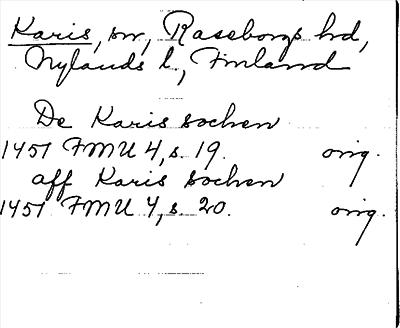 Karis, sn, Raseborgs hd,
Nylands l., Finland
De Karis sochen
1451 FMU 4, s. 19. orig.
aff Karis sochen
1451 FMU 4, s. 20. orig.